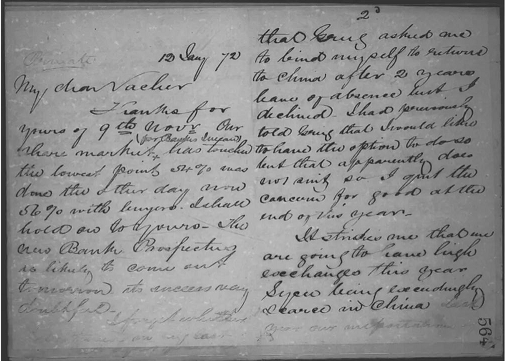 Private
12 Jany 72
My dear Vacher
Thanks for
yours of 9th Novr. Our
share market (for Banks & Insces) has touched
the lowest point 54% was
done the other day now
56% with buyers. I shall
hold on to yours - The
new Bank Prospectus
is likely to come out
tomorrow its success very
doubtful -
2d
that Gang asked me
to bind myself to return
to China after 2 years
leave of absence but I
declined. I had previously
told Gang that I would like
to have the option to do so
but that apparently does
not suit so I quit the
concern for good at the
end of this year -
It strikes me that we
are going to have high
exchanges this year
Sycee being exceedingly
scarce in China
our importations
564